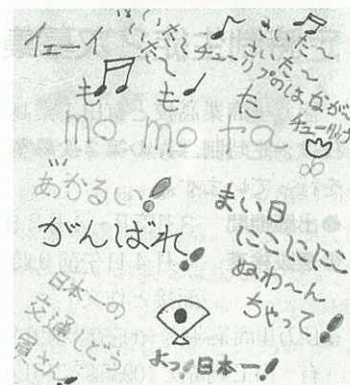 イエーイ
さいた～
さいた～
チューリップのはなが～
も も た
mo mo ta
あかるい!
がんばれ!
まい日
にこにこ
ぬわ～ん
ちゃって!
日本一の
交通し
員さん!
よっ!日本一!